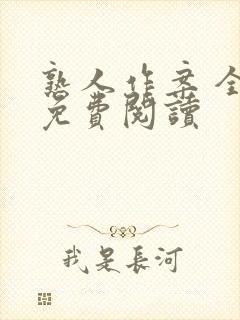 熟人作案 全
免費閱讀
我是長河